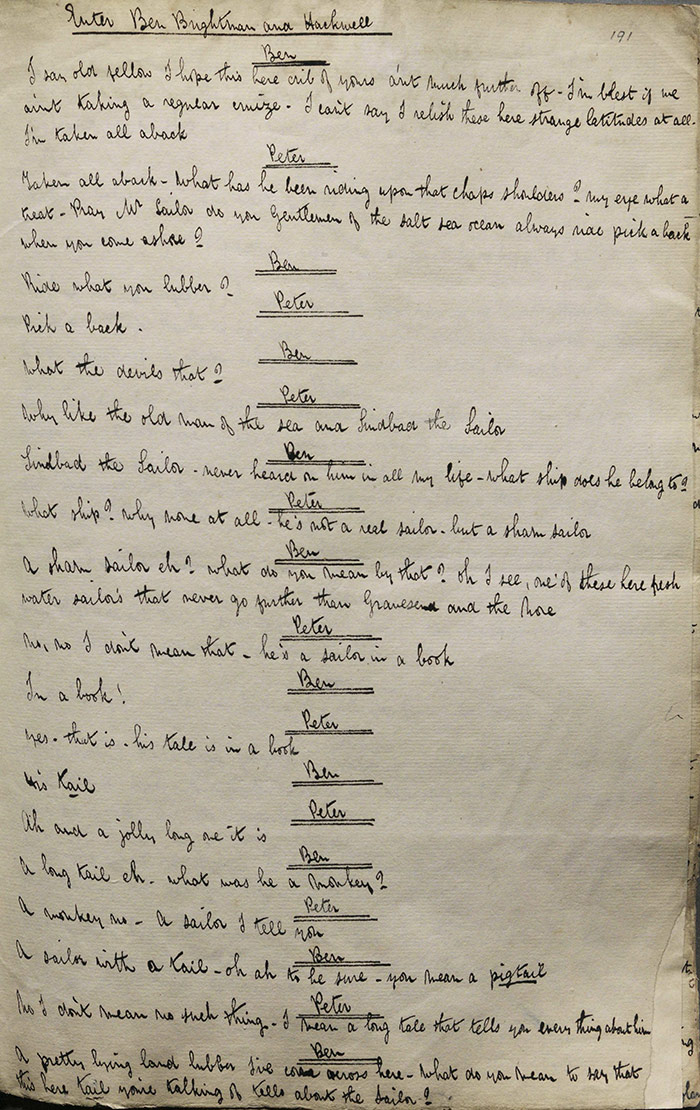 Enter Ben Brightman and Hackwell
191
Ben
I say old fellow I hope this here crib of yours ain't much further off - I'm blest if we
aint taking a reg'lar cruize - I can't say I relish these here strange latitudes at all -
I'm taken all aback
Peter
Taken all aback - What has he been riding upon that chaps shoulders? my eye what a
treat - Pray Mr Sailor do you Gentlemen of the salt sea ocean always ride pick a back
when you come ashore?
Ben
Ride what you lubber?
Peter
Pick a back.
Ben
What the devils that?
Peter
Why like the old man of the sea and Sindbad the Sailor
Ben
Sindbad the Sailor - never heard on him in all my life - what ship does he belong to?
Peter
What ship? Why none at all - he's not a real sailor - but a sham sailor
Ben
A sham sailor eh? what do you mean by that? oh I see, one of these here fresh
water sailors that never go further than Gravesend and the Nore
Peter
No, no I don't mean that - he's a sailor in a book
Ben
In a book!
Peter
Yes - that is - his tale is in a book
Ben
His tail
Peter
Ah and a jolly long one it is
Ben
A long tail eh - what was he a monkey?
Peter
A monkey no - A sailor I tell you
Ben
A sailor with a tail - oh ah to be sure - you mean a pigtail
Peter
No I don't mean no such thing - I mean a long tale that tells you every thing about him
Ben
A pretty lying land lubber I've come across here - What do you mean to say that
this here tail you're talking of tells about the sailor?